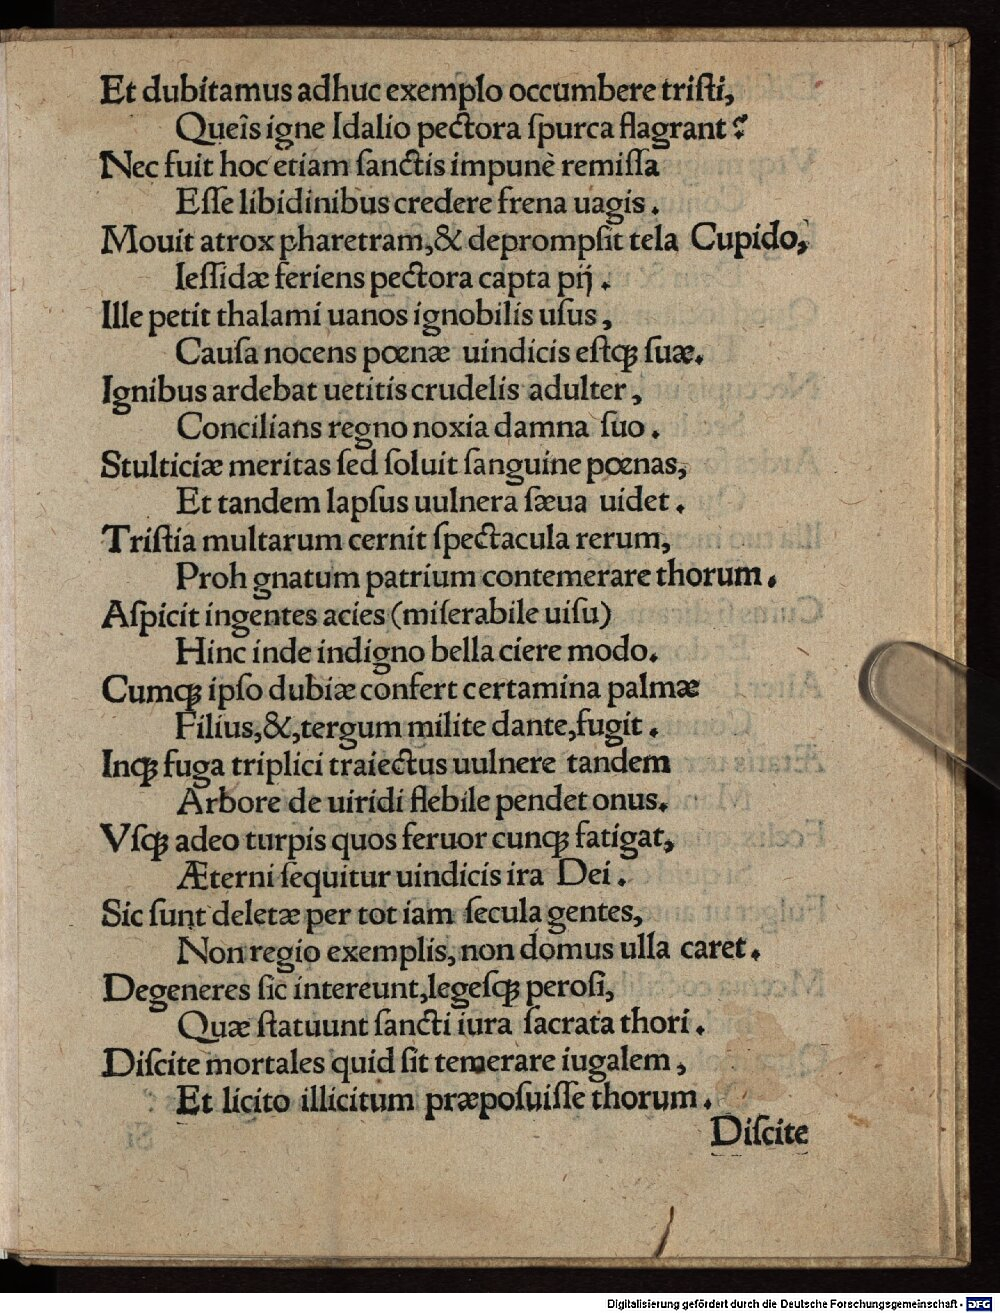 Et dubitamus adhuc exemplo occumbere triſti,
Queîs igne Idalio pectora ſpurca flagrant?
Nec fuit hoc etiam ſanctis impunè remiſſa
Eſſe libidinibus credere frena uagis.
Mouit atrox pharetram,& deprompſit tela Cupido,
Ieſſidæ feriens pectora capta pij.
Ille petit thalami uanos ignobilis uſus,
Cauſa nocens pœnæ uindicis eſtqꝫ ſuæ.
Ignibus ardebat uetitis crudelis adulter,
Concilians regno noxia damna ſuo.
Stulticiæ meritas ſed ſoluit ſanguine pœnas,
Et tandem lapſus uulnera ſæua uidet.
Triſtia multarum cernit ſpectacula rerum,
Proh gnatum patrium contemerare thorum.
Aſpicit ingentes acies (miſerabile uiſu)
Hinc inde indigno bella ciere modo.
Cumqꝫ ipſo dubiæ confert certamina palmæ
Filius,&,tergum milite dante,fugit.
Inqꝫ fuga triplici traiectus uulnere tandem
Arbore de uiridi flebile pendet onus.
Vſqꝫ adeo turpis quos feruor cunqꝫ fatigat,
Æterni ſequitur uindicis ira Dei.
Sic ſunt deletæ per tot iam ſecula gentes,
Non regio exemplis, non domus ulla caret.
Degeneres ſic intereunt,legeſqꝫ peroſi,
Quæ ſtatuunt ſancti iura ſacrata thori.
Diſcite mortales quid ſit temerare iugalem,
Et licito illicitum præpoſuiſſe thorum.
Diſcite
Digitalisierung gefördert durch die Deutsche Forschungsgemeinschaft - DFG